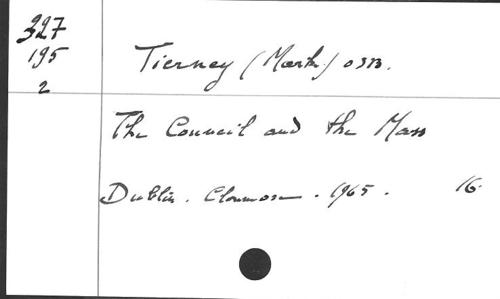 327
195
2
Tierney (Mark) OSB.
The Council and the Mass
Dublin. Clonmore. 1965. 16